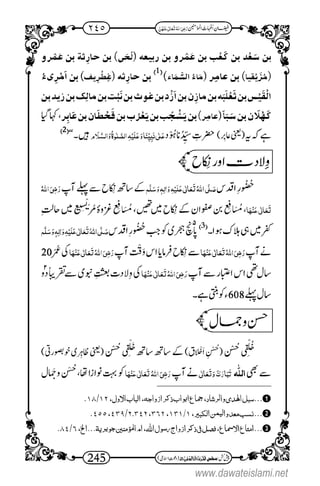 فیضانِ اُمَّہاتُ المؤمنین ۲٤٥
بن سَعْد بن كَعْب بن عَمْرو بن ربيعه (لُحَى) بن حارِثة بن عَمْرو
(مُزَيْقِيَا) بن عامِر (مَاءُ السَّمَاء)(1) بن حارِثه (غِطْرِيف) بن اِمْرِىءُ
الْقَيْس بن ثَعْلَبَه بن مازِن بن اَزْد بن غوث بن نَبْت بن مالِک بن زيد بن
كَهْلَان بن سَبَأ (عامِر) بن يَشْجُب بن يَعْرُب بن قَحْطَان بن عَابَر، کہا گیا
ہے کہ یہی (یعنی عابر)
ہیں۔(2)
ولادت اور نکاح
حُضُورِ اقدس صَلَّى اللهُ تَعَالٰى عَلَيْهِ وَاٰلِهٖ وَسَلَّم کے ساتھ نکاح سے پہلے آپ رَضِىَ اللهُ
تَعَالٰى عَنْهَا، مُسَافِع بن صفوان کے نکاح میں تھیں، مُسَافِع غزوۂ مُرَیْسِیْع میں حالتِ
کفر میں ہی ہلاک ہوا۔(3) پانچ ہجری کو جب حُضُورِ اقدس صَلَّى اللهُ تَعَالٰى عَلَيْهِ وَاٰلِهٖ وَسَلَّم
نے آپ رَضِىَ اللهُ تَعَالٰى عَنْهَا سے نکاح فرمایا اس وَقْت آپ رَضِىَ اللهُ تَعَالٰى عَنْهَا کی عُمْر 20
سال تھی اس اعتبار سے آپ رَضِىَ اللهُ تَعَالٰى عَنْهَا کی ولادت بعثتِ نبوی سے تقریباً دو
سال پہلے 608ء کو بنتی ہے۔
حسن وجمال
خُلْقِی حُسْن (حُسْنِ اَخْلَاق) کے ساتھ ساتھ خَلْقِی حُسْن (یعنی ظاہری خوبصورتی)
سے بھی اللہ تَبَارَكَ وَتَعَالٰى نے آپ رَضِىَ اللهُ تَعَالٰى عَنْهَا کو بہت نوازا تھا، حُسْن وجمال
1…سبل الهدى والرشاد، جماع ابواب ذكر ازواجه، الباب الاول، ۱۲/۱۸.
2…نسب معد واليمن الكبير، ۱/۱۳۱، ۳٦۲، ۲/۳٤۲، ٤۳۹، ٤٥٥.
3…امتاع الاسماع، فصل فى ذكر ازواج رسول الله، ام المؤمنين جويرية...الخ، ٦/۸٤.
245
www.dawateislami.net